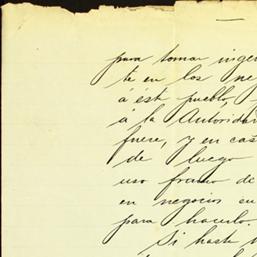 para tomar inger
te en los ne
á ést pueblo,
á la Autorida
fuere, y en cas
de luego
uso franco de
en negocios su
para hacerlo.
Si hasta